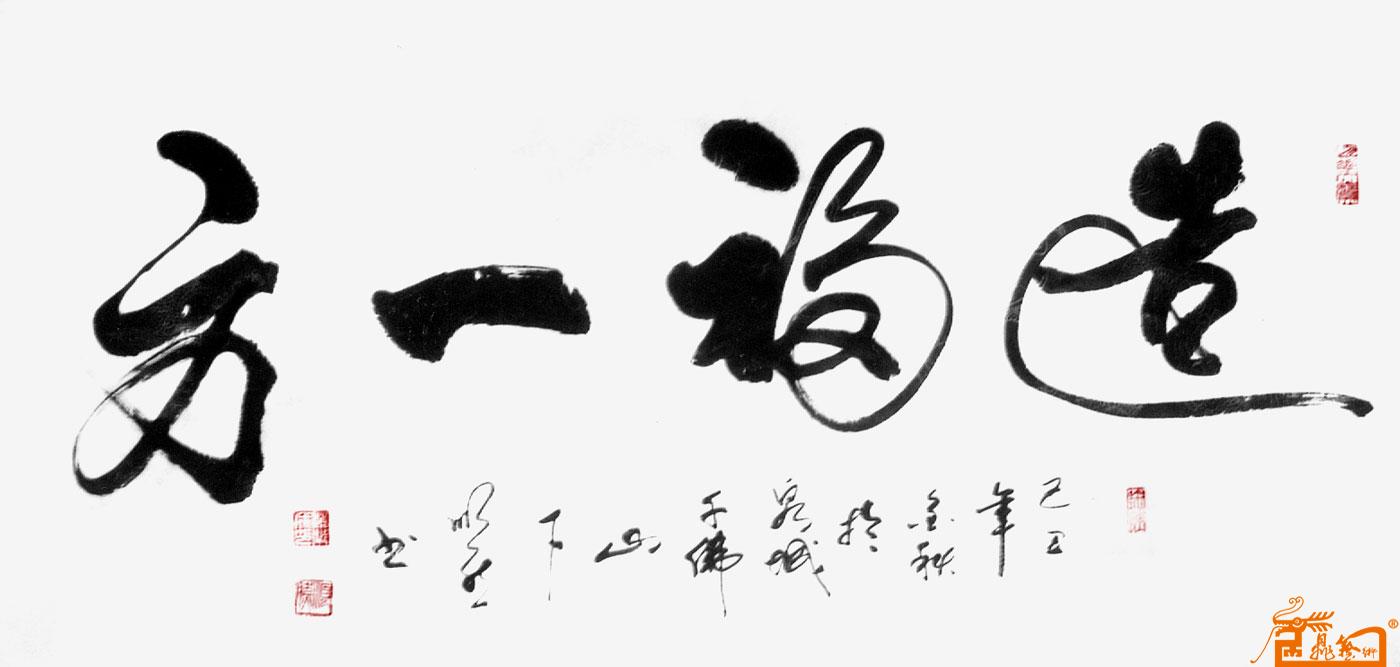 造福一方
己丑年金秋於泉城千佛山下
书